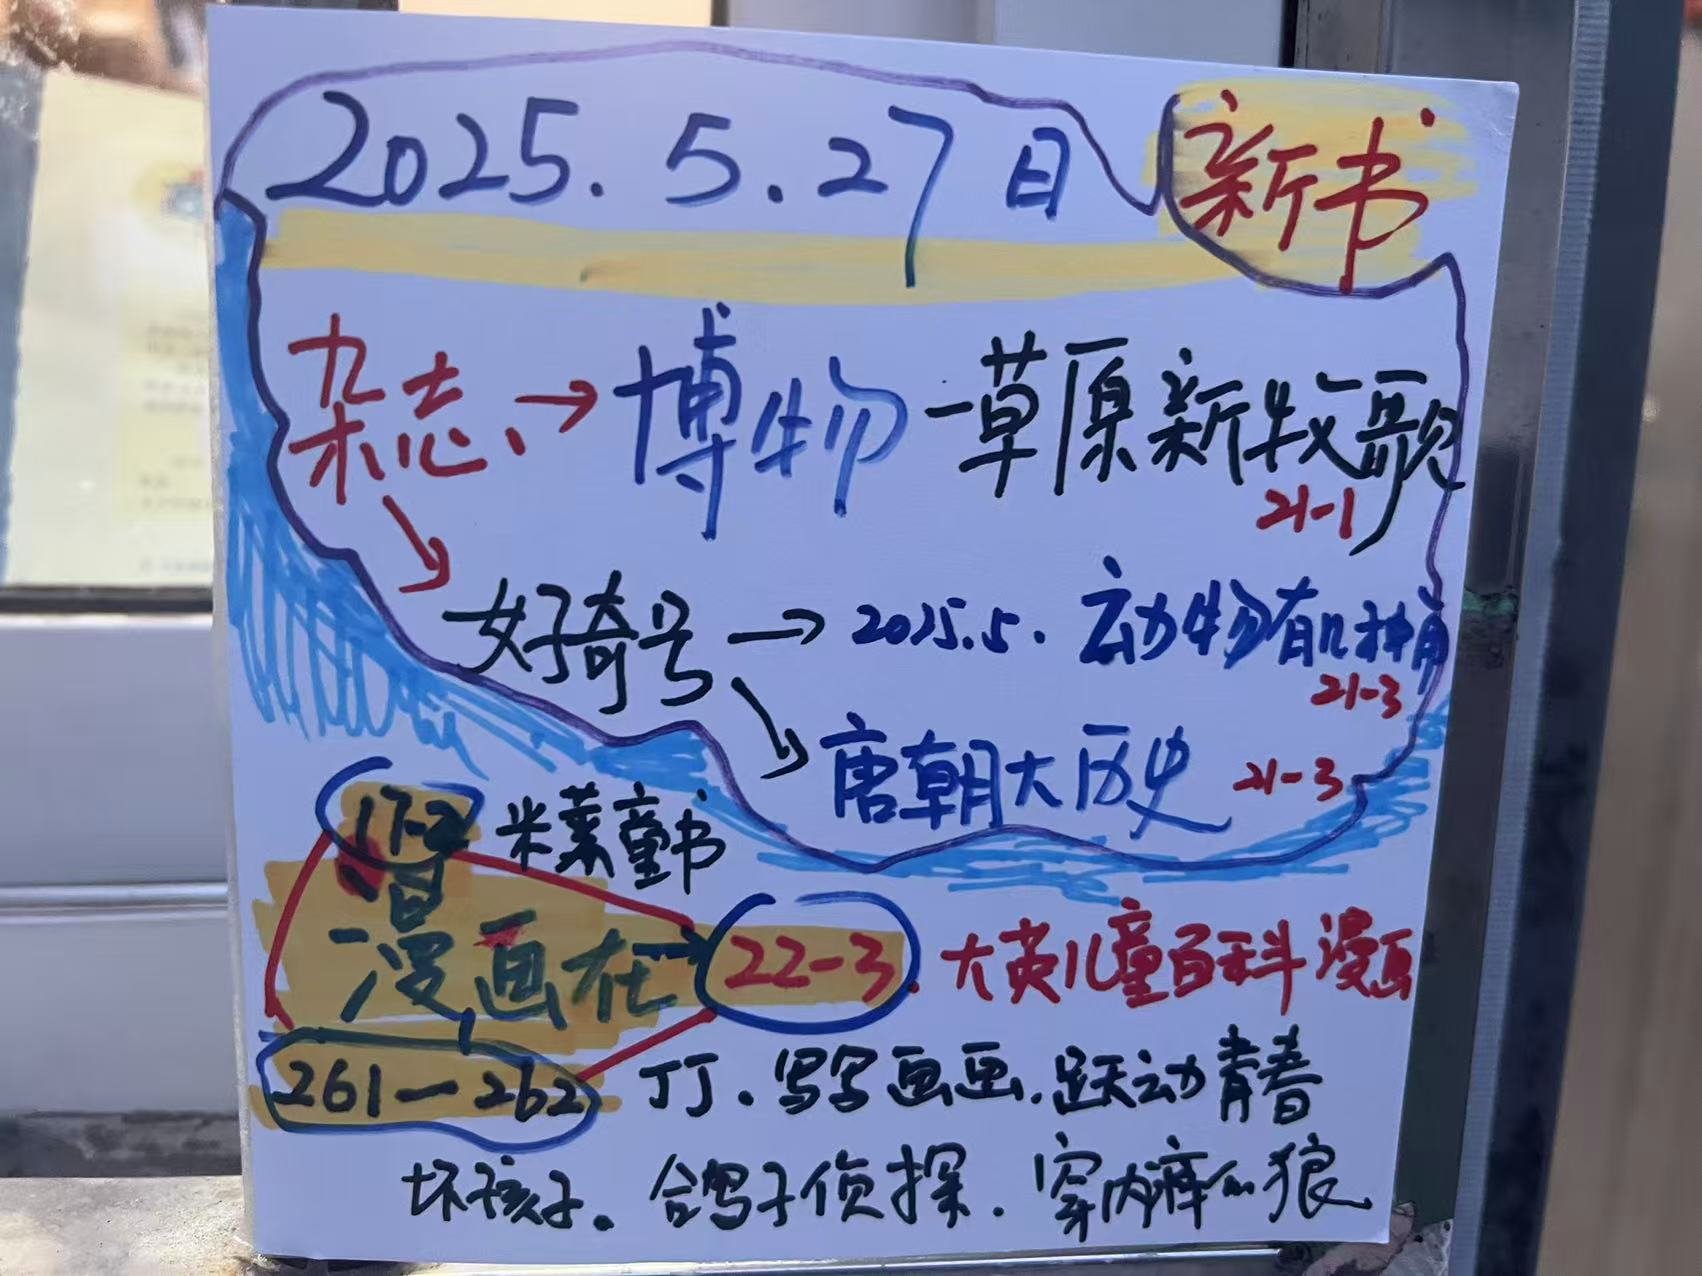 2025.5.27日 新书
杂志、→博物—草原新牧歌
21-1
好奇号→2025.5.动物有几神角
21-3
唐朝大历史 21-3
17-2 米莱童书
漫画在 22-3.大英儿童百科漫画
261—262 丁丁.写写画画.跃动青春
坏孩子.鸽子侦探.穿内裤的狼